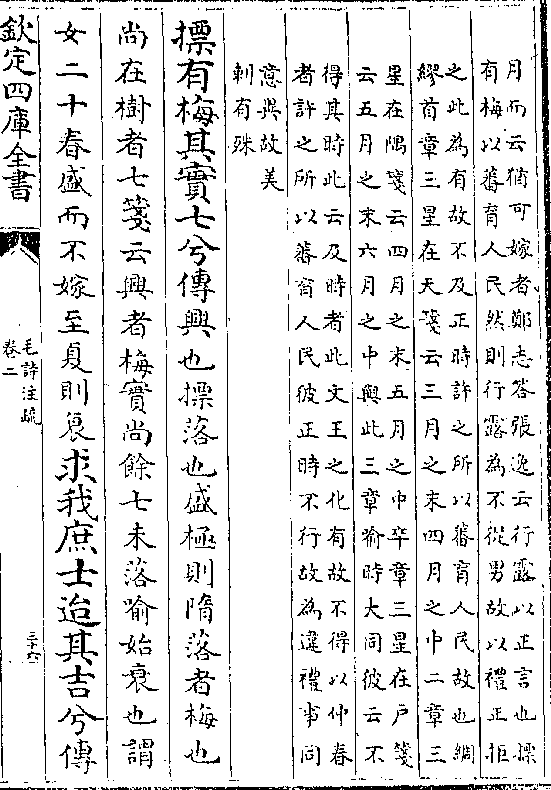 月而云猶可嫁者鄭志答張逸云行露以正言也摽
有梅以蕃育人民然則行露為不從男故以禮正拒
之此為有故不及正時許之所以蕃育人民故也綢
繆首章三星在天箋云三月之末四月之中二章三
星在隅箋云四月之末五月之中卒章三星在戶箋
云五月之末六月之中與此三章喻時大同彼云不
得其時此云及時者此文王之化有故不得以仲春
者許之所以蕃育人民彼正時不行故為違禮事同
意異故美
刺有殊
摽有梅其實七兮傳興也摽落也盛極則隋落者梅也
尚在樹者七箋云興者梅實尚餘七未落喻始衰也謂
女二十春盛而不嫁至夏則衰求我庶士迨其吉兮傳
欽定四庫全書
毛詩注疏
卷二
三十六